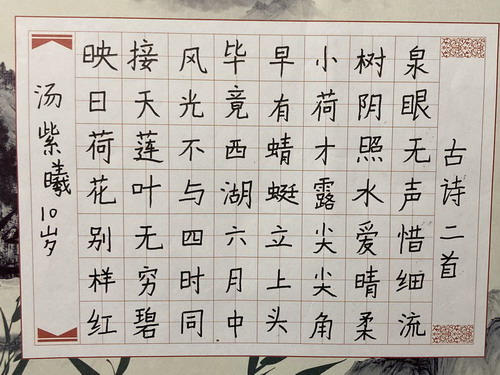 古诗二首
泉眼无声惜细流
树阴照水爱晴柔
小荷才露尖尖角
早有蜻蜓立上头
毕竟西湖六月中
风光不与四时同
接天莲叶无穷碧
映日荷花别样红
汤紫曦10岁